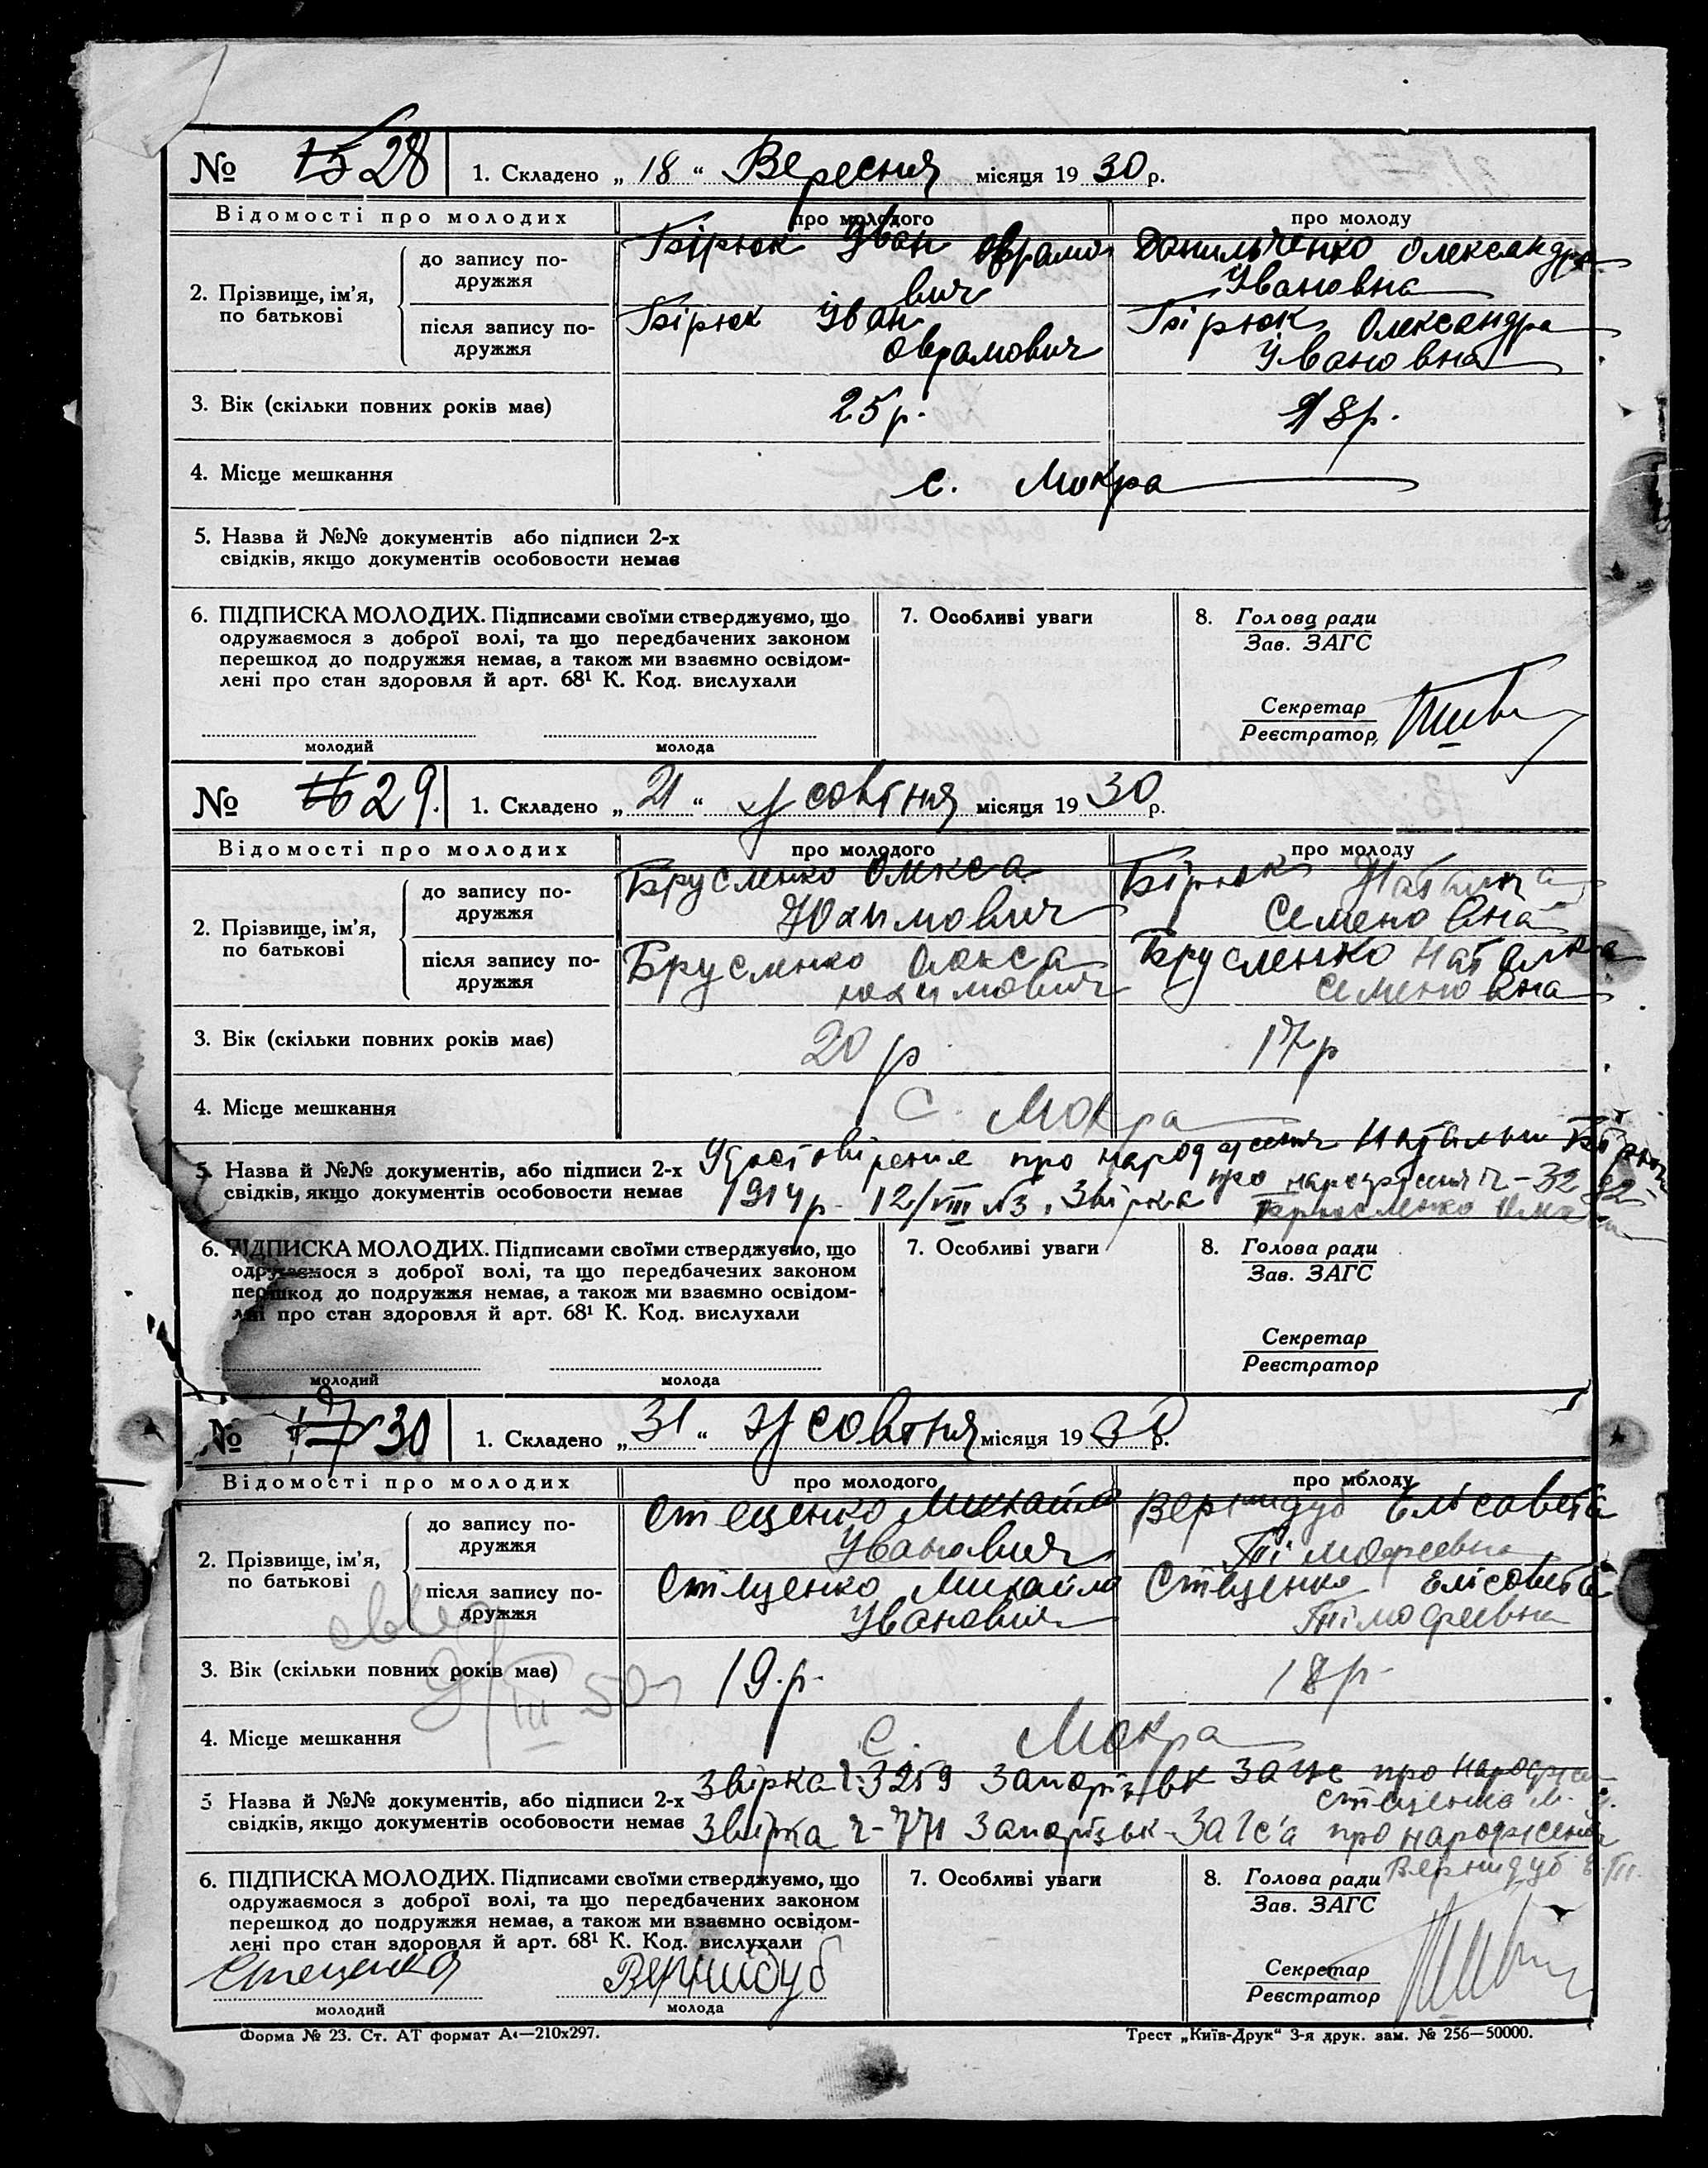 № 15 28 1. Складено „ 18 “ Вересня місяця 19 30 р.
Відомості про молодих про молодого про молоду
2. Прізвище, ім’я, по батькові
до запису подружжя
Бірюк Іван Оврамович
Данильченко Олександра Івановна
після запису подружжя
Бірюк Іван Оврамович
Бірюк Олександра Івановна
3. Вік (скільки повних років має) 25 р. 18 р.
4. Місце мешкання с. Мокра
5. Назва й №№ документів або підписи 2-х
свідків, якщо документів особовости немає
6. ПІДПИСКА МОЛОДИХ. Підписами своїми стверджуємо, що
одружаємося з доброї волі, та що передбачених законом
перешкод до подружжя немає, а також ми взаємно освідом-
лені про стан здоровля й арт. 68¹ К. Код. вислухали
молодий молода
7. Особливі уваги
8. Голова ради
Зав. ЗАГС
Секретар
Реєстратор
№ 16 29. 1. Складено „ 21 “ Жовтня місяця 19 30 р.
Відомості про молодих про молодого про молоду
2. Прізвище, ім’я, по батькові
до запису подружжя
Брусленко Олекса Юхимович
Бірюк Наталка Семеновна
після запису подружжя
Брусленко Олекса Юхимович
Брусленко Наталка Семеновна
3. Вік (скільки повних років має) 20 р 17 р
4. Місце мешкання С. Мокра
5. Назва й №№ документів, або підписи 2-х
свідків, якщо документів особовости немає
про народження Натальи Бірюк
1914 р. 12/VIII №3. Звірка про народження ч-32 82
6. ПІДПИСКА МОЛОДИХ. Підписами своїми стверджуємо, що
одружаємося з доброї волі, та що передбачених законом
перешкод до подружжя немає, а також ми взаємно освідом-
лені про стан здоровля й арт. 68¹ К. Код. вислухали
молодий молода
7. Особливі уваги
8. Голова ради
Зав. ЗАГС
Секретар
Реєстратор
№ 17 30 1. Складено „ 31 “ Жовтня місяця 19 30 р.
Відомості про молодих про молодого про молоду
2. Прізвище, ім’я, по батькові
до запису подружжя
Стеценко Михайло Іванович
Вернидуб Елісавета Тімофеевна
після запису подружжя
Стеценко Михайло Іванович
Стеценко Елісавета Тімофеевна
3. Вік (скільки повних років має) 19. р. 18 р.
4. Місце мешкання с. Мокра
5 Назва й №№ документів, або підписи 2-х
свідків, якщо документів особовости немає
Звірка ч. 3259 Запоріжськ ЗАГС про народжен
Стеценко М. І.
Звірка ч-771 Запорізьк-ЗАГС'а про народження
Вернидуб Е. Т.
6. ПІДПИСКА МОЛОДИХ. Підписами своїми стверджуємо, що
одружаємося з доброї волі, та що передбачених законом
перешкод до подружжя немає, а також ми взаємно освідом-
лені про стан здоровля й арт. 68¹ К. Код. вислухали
Стеценко Вернидуб
молодий молода
7. Особливі уваги
8. Голова ради
Зав. ЗАГС
Секретар
Реєстратор
Форма № 23. Ст. АТ формат А4—210х297.
Трест „Київ-Друк“ 3-я друк. зам. № 256—50000.